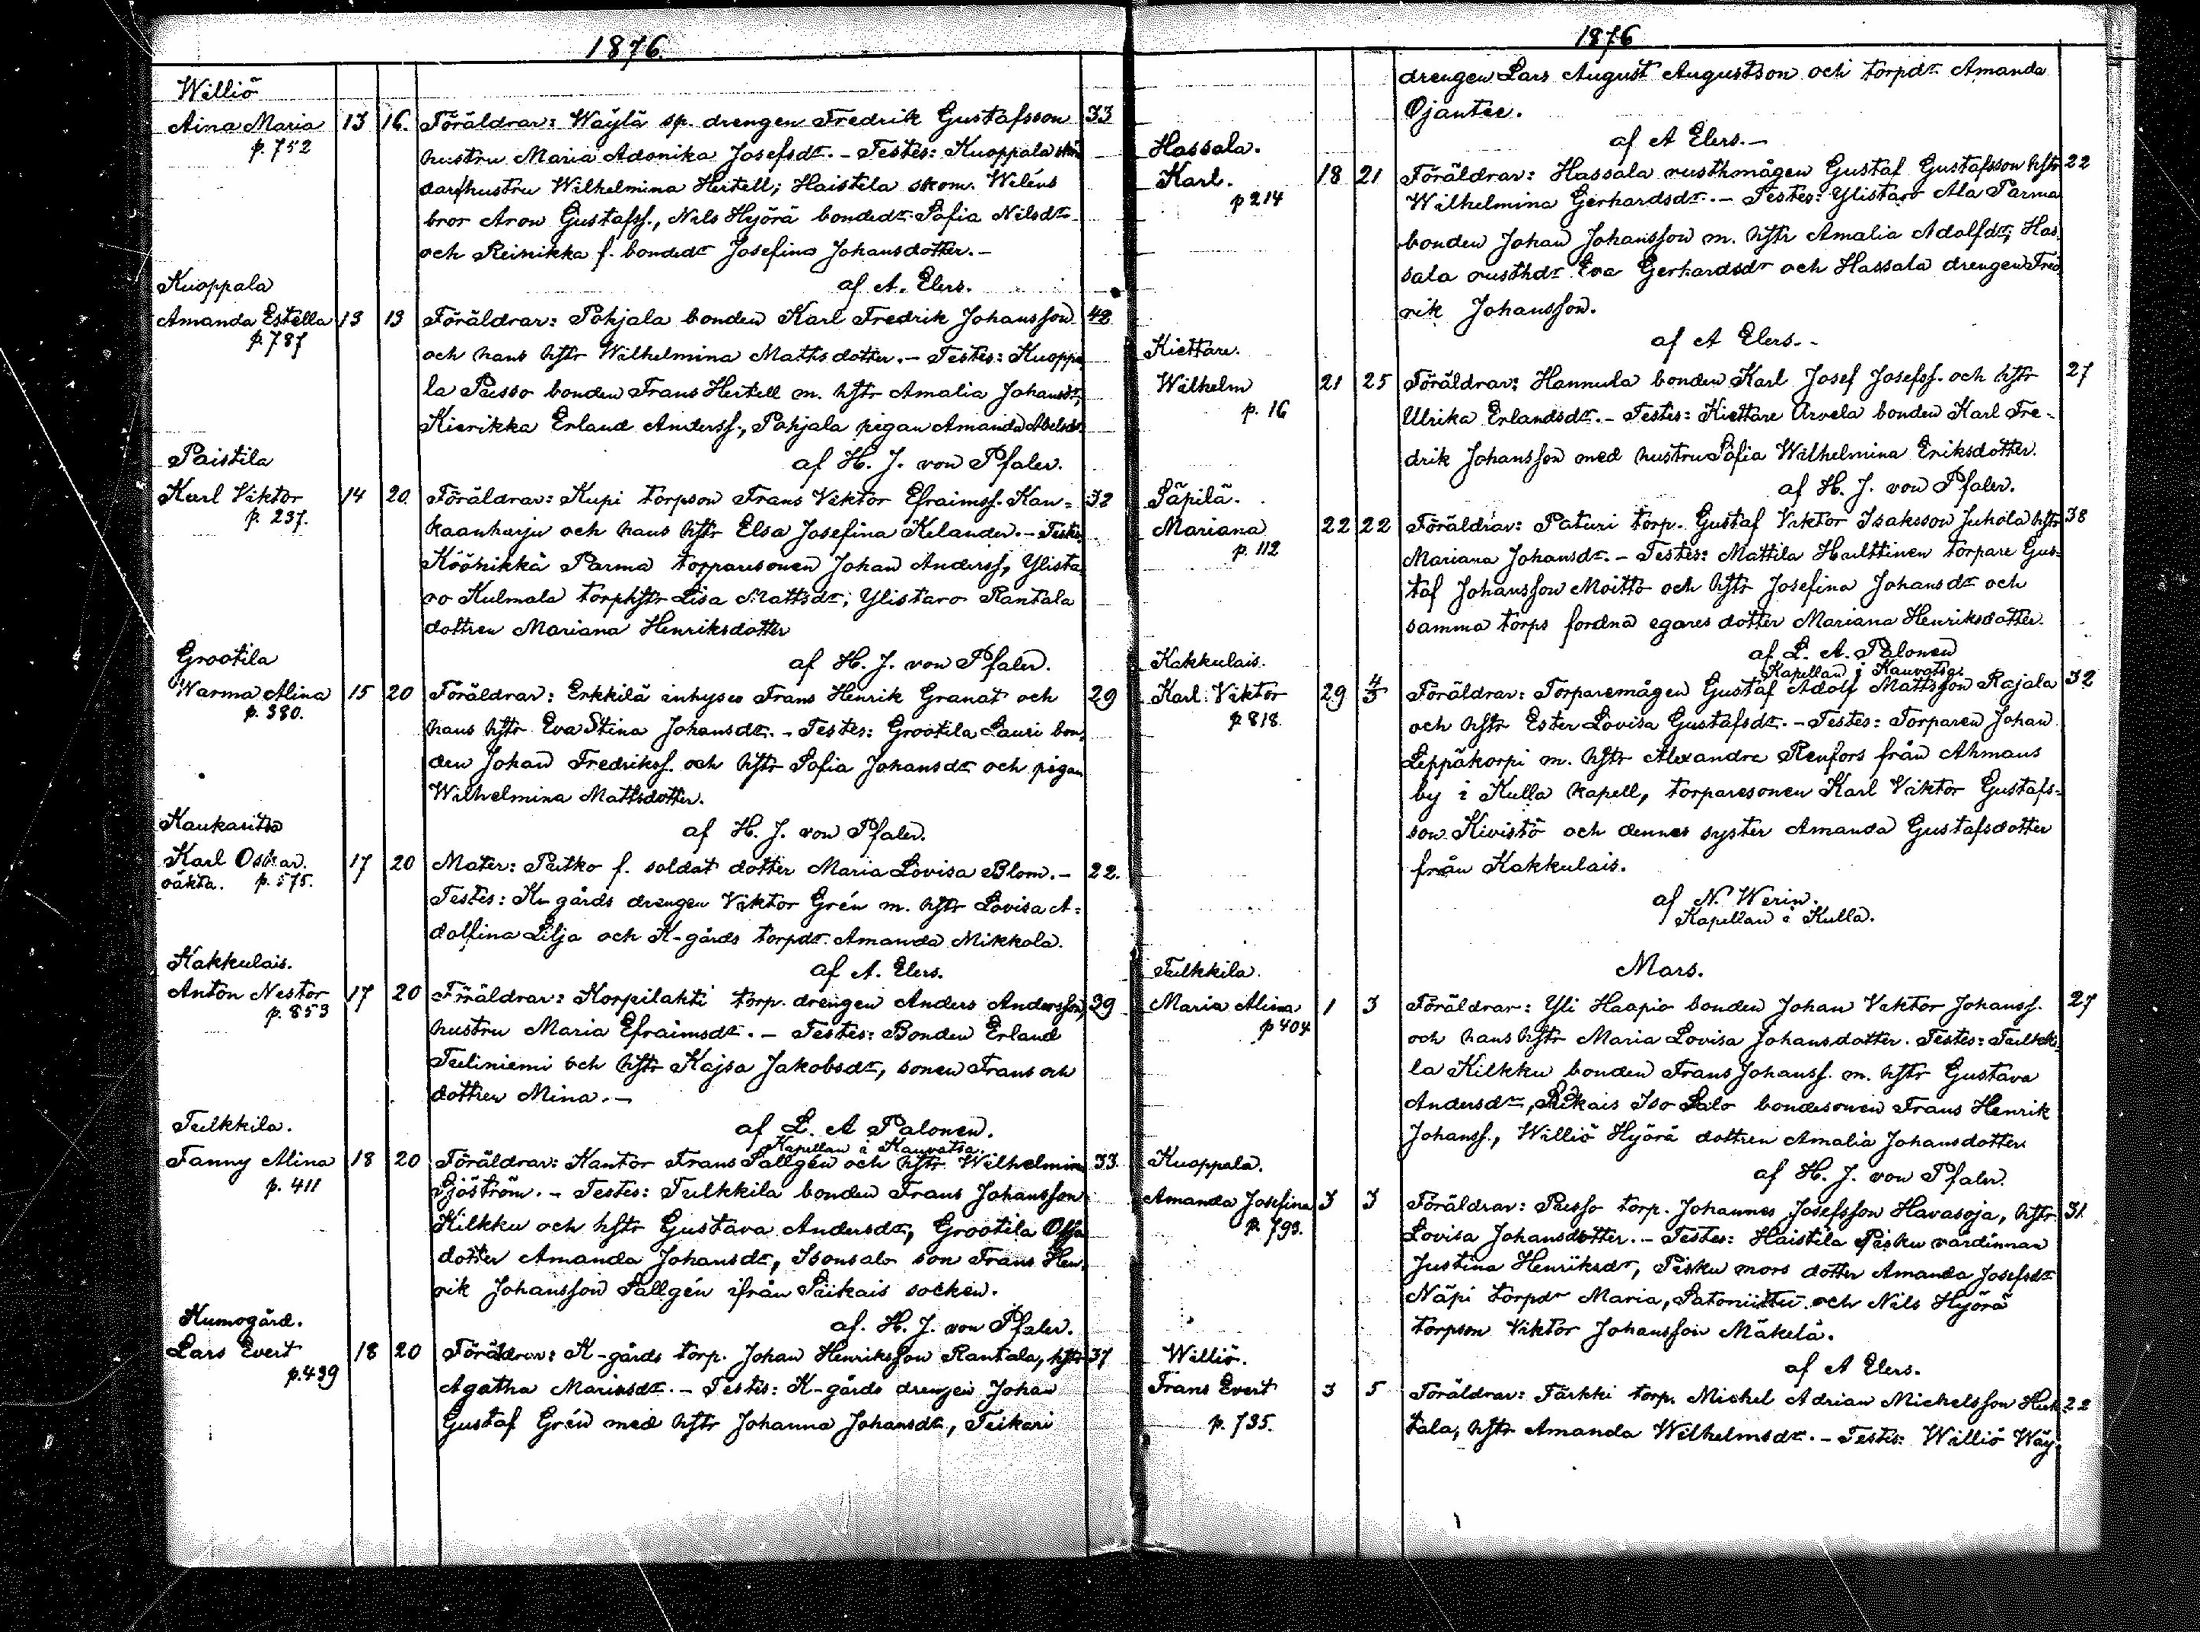 1876.
Williö
Aina Maria 13 16. Föräldrar: Wäylä sp. drengen Fredrik Gustafsson 33
p. 752 hustru Maria Adonika Josefsdr. - Testes: Kuoppala
darhustru Wilhelmina Hertell; Haistila skom. Weléns
bror Aron Gustafss., Nils Hyörä bondedr Sofia Nilsdr
och Reinikka f. bondedr Josefina Johansdotter. -
Kuoppala af A. Elers.
Amanda Estella 13 13 Föräldrar: Pohjala bonden Karl Fredrik Johansson 42
p. 787 och hans hstr Wilhelmina Mattsdotter. - Testes: Kuoppa
la Passo bonden Frans Hertell m. hstr Amalia Johansdr,
Kierikka Erland Anderss., Pohjala pigan Amanda Abelsdr.
Paistila af H. J. von Pfaler.
Karl Viktor 14 20. Föräldrar: Kupi torpson Frans Viktor Efraimss. Kan= 32
p. 237. kaanharju och hans hstr Elsa Josefina Kelander. - Testes
Köönikkä Parma torparesonen Johan Anderss, Ylista
ro Kulmala torphstr Lisa Mattsdr, Ylistaro Rantala
dottren Mariana Henriksdotter
Grootila af H. J. von Pfaler.
Warma Alina 15 20 Föräldrar: Erkkilä inhyses Frans Henrik Granat och 29
p. 380. hans hstr Eva Stina Johansdr. - Testes: Grootila Lauri bon,
den Johan Fredrikss. och hstr Sofia Johansdr och pigan
Wilhelmina Mattsdotter.
Kaukaritsa af H. J. von Pfaler.
Karl Oskar. 17 20 Mater: Putko f. soldat dotter Maria Lovisa Blom. - 22.
oäkta. p. 575. Testes: K-gårds drengen Viktor Grén m. hstr Lovisa A=
dolfina Lilja och K-gårds torpdr Amanda Mikkola.
Kakkulais. af A. Elers.
Anton Nestor 17 20 Föräldrar: Korpilahti torp. drengen Anders Andersson, 39
p. 853 hustru Maria Efraimsdr. - Testes: Bonden Erland
Tuliniemi och hstr Kajsa Jakobsdr, sonen Frans och
dottren Mina. -
Tulkkila. af L. A Palonen.
Kapellan i Kauvatsa.
Fanny Alina 18 20 Föräldrar: Kantor Frans Sallgén och hstr Wilhelmina 33
p. 411 Sjöström. - Testes: Tulkkila bonden Frans Johansson
Kilkku och hstr Gustava Andersdr, Grootila Olla
dotter Amanda Johansdr, Isonsalo son Frans Hen,
rik Johansson Sallgén ifrån Kikais socken.
Kumogård. af. H. J. von Pfaler.
Lars Evert 18 20 Föräldrar: K-gårds torp. Johan Henriksson Rantala, hstr 37
p. 439 Agatha Mariasdr. - Testes: K-gårds drengen Johan
Gustaf Grén med hstr Johanna Johansdr, Teikari
1876
drengen Lars August Augustson och torpdr Amanda
Ojantee.
af A Elers. -
Hassala.
Karl. 18 21 Föräldrar: Hassala rusthmågen Gustaf Gustafsson hstr 22
p 214 Wilhelmina Gerhardsdr. - Testes: Ylistaro Ala Parma
bonden Johan Johansson m. hstr Amalia Adolfdr, Has,
sala rusthdr Eva Gerhardsdr och Hassala drengen Fred
rik Johansson.
af A Elers. -
Kiettare.
Wilhelm 21 25 Föräldrar: Hannula bonden Karl Josef Josefss. och hstr 27
p. 16 Ulrika Erlandsdr. - Testes: Kiettare Arvela bonden Karl Fre-
drik Johansson med hustru Sofia Wilhelmina Eriksdotter.
af H. J. von Pfaler.
Säpilä.
Mariana 22 22 Föräldrar: Paturi torp. Gustaf Viktor Isaksson Juhola hstr 38
p. 112 Mariana Johansdr. - Testes: Mattila Harlttinen torpare Gus-
taf Johansson Moitto och hstr Josefina Johansdr och
samma torps fordna egares dotter Mariana Henriksdotter.
af L. A. Palonen
Kapellan i Kauvatsa.
Kakkulais.
Karl Viktor 29 4/3 Föräldrar: Torparemågen Gustaf Adolf Mattsson Rajala 32
p 818. och hstr Ester Lovisa Gustafsdr. - Testes: Torparen Johan
Leppäkorpi m. hstr Alexandra Renfors från Ahmaus
by i Kulla kapell, torparesonen Karl Viktor Gustafs-
son Kivistö och dennes syster Amanda Gustafsdotter
från Kakkulais.
af N. Werin.
Kapellan i Kulla.
Mars.
Tulkkila.
Maria Alina 1 3 Föräldrar: Yli Haapio bonden Johan Viktor Johanss. 27
p 404 och hans hstr Maria Lovisa Johansdotter. Testes: Tulkki,
la Kilkku bonden Frans Johanss. m. hstr Gustava
Andersdr, Kikais Iso Salo bondesonen Frans Henrik
Johanss., Williö Hyörä dottren Amalia Johansdotter
af H. J. von Pfaler.
Kuoppala.
Amanda Josefina 3 3 Föräldrar: Passo torp. Johannes Josefsson Havasoja, hstr 31
p. 793. Lovisa Johansdotter. - Testes: Haistila Pisku värdinnan
Justina Henriksdr, Pisku mors dotter Amanda Josefsdr
Näpi torpdr Maria, Satoniittu och Nils Hyörä
torpson Viktor Johansson Mäkelä.
af A Elers.
Williö.
Frans Evert 3 5 Föräldrar: Färkki torp. Michel Adrian Michelsson Huh 22
p. 735. tala, hstr Amanda Wilhelmsdr. - Testes: Williö Wäy-